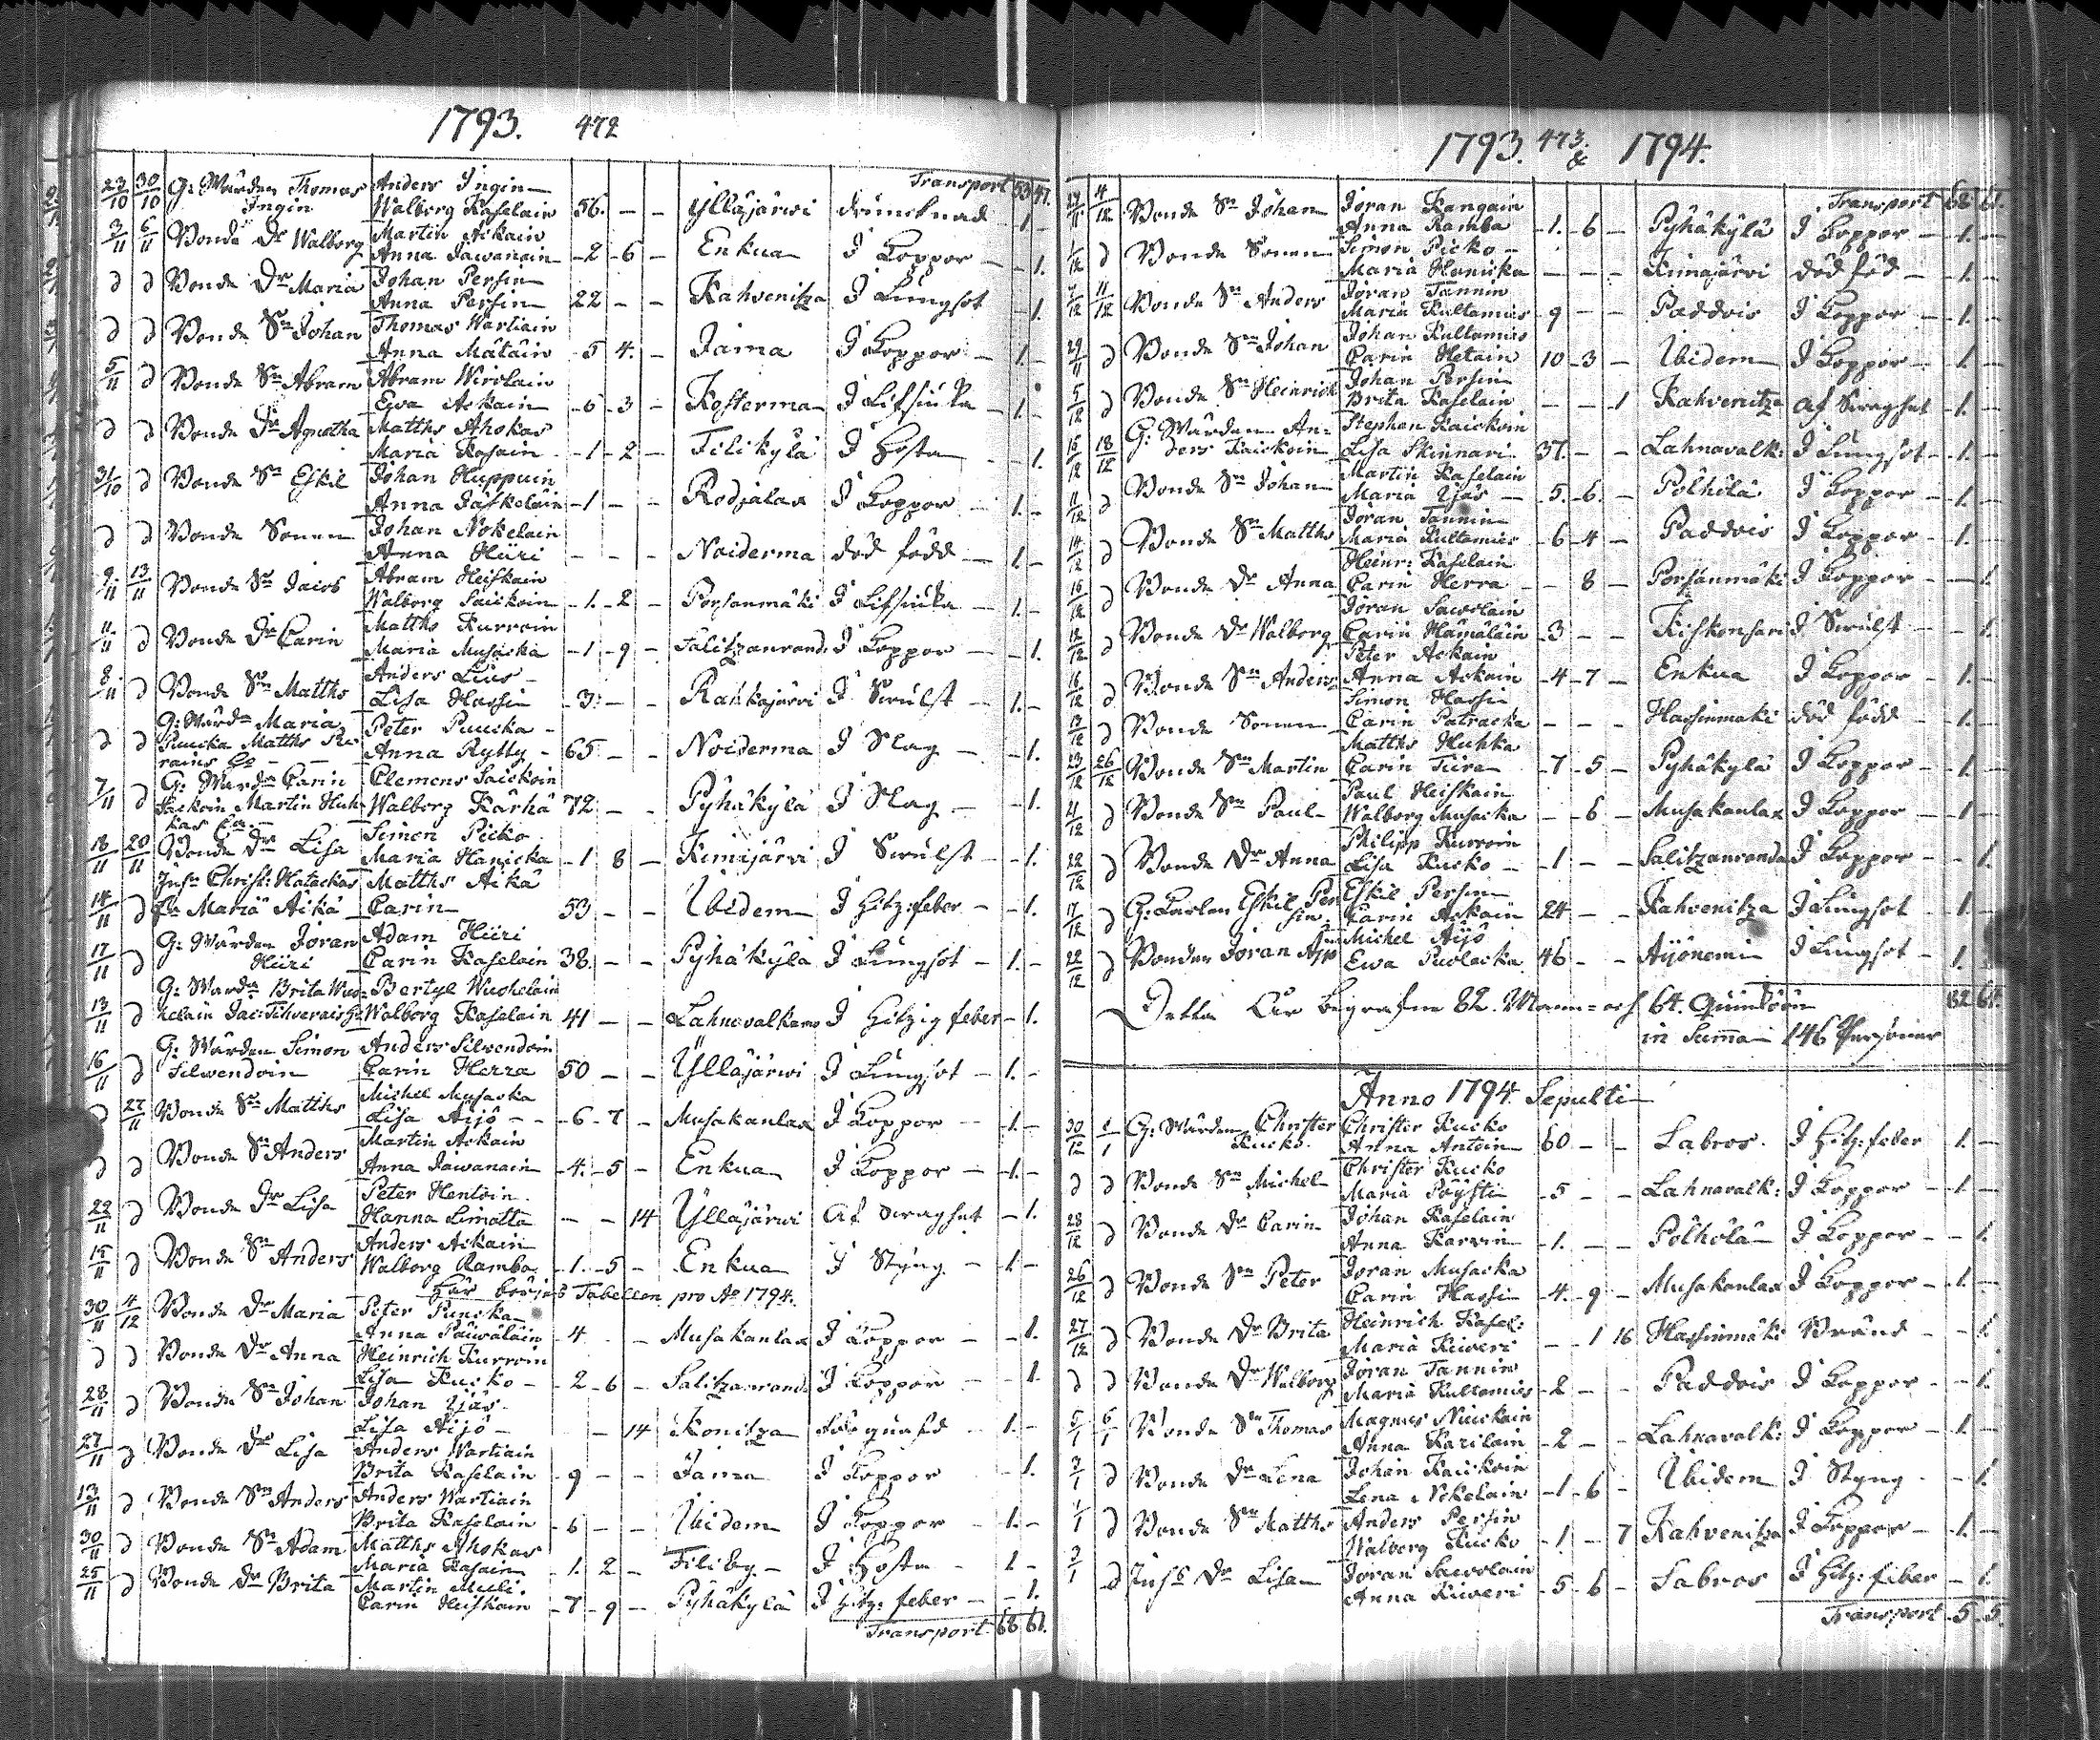 1793. 472
Transport 53 47.
23/10 30/10 G: Wärden Thomas Anders Ingin
Ingin Walborg Kaselain 56. — — Ylläjärwi drunknad 1 -
3/11 6/11 Bonde Dr Walborg Martin Ackain
Anna Jawanain -2 -6 - Enkua I Koppor — -1.
d d Bonde Dr Maria Johan Persin
Anna Persin 22 - - Kahvenitza I Lungsot -1.
d d Bonde Sn Johan Thomas Wartiain
Anna Mätäin -5 4. - Jama I Koppor — 1.-
5/11 d Bonde Sn Abram Abram Wirolain
Ewa Ackain -6 -3 - Kosterma I — 1.-
d d Bonde Dr Agnetha Matths Ahokas
Maria Kasain -1 -2 - Filikylä I Hosta — -1.
31/10 d Bonde Sn Eskil Johan Huppuin
Anna Jäskeläin -1 - - Rodjalax I Koppor — 1.-
d d Bonde Sonen Johan Nokelain
Anna Hiiri - - - Noiderma död född — 1 -
9/11 13/11 Bonde Sn Jacob Abram Heiskain
Walborg Saickoin -1. -2 - Porsanmäki I — 1.-
11/11 d Bonde Dr Carin Matths Kurroin
Maria Musacka -1 -9 - Salitzanrand: I Koppor — -1.
8/11 d Bonde Sn Matths Anders Lius
Lisa Hassin -3. - - Rahkajärvi I Swulst — 1.-
d d G: Wärda Maria Peter Puucka
Puucka Matths Anna Rytty - 65 - - Noiderma I Slag — -1.
7/11 d G: Wärda Carin Clemens Saickoin
Martin Huh Walborg Kärhä 72 - - Pyhäkylä I Slag — -1.
kas
18/11 20/11 Bonde Dr Lisa Simon Picko
Maria Hanicka -1 8 - Kimijärvi I Swulst — -1.
14/11 d Christ: Hatackas Matths Äikä
Maria Äikä Carin 53 - - Ibidem I Hitz: feber — -1.
17/11 d G: Wärden Jöran Adam Hiiri
Hiiri Carin Kaselain 38. - - Pyhäkylä I Lungsot — 1.-
13/11 d G: Wärda Brita Bertil
Walborg Kaselain 41 - - I Hitzig feber -1.
16/11 d G: Wärden Simon Anders Silwendoin
Silwendoin Carin Herra 50 - - Ylläjärwi I Lungsot — 1.-
d 27/11 Bonde Sn Matths Michel Musacka
Lisa Äijö - -6 -7 - Musakanlax I Koppor — 1 -
d d Bonde Sn Anders Martin Ackain
Anna Jäwanain -4. -5 - Enkua I Koppor — 1 -
22/11 d Bonde Dr Lisa Peter Hentoin
Hanna Limatta - - 14 Ylläjärwi Af swaghet -1.
15/11 d Bonde Sn Anders Anders Ackain
Walborg Ramba -1. -5 - Enkua I Styng. — 1 -
Här börjas Tabellen pro Ao 1794.
30/11 4/12 Bonde Dr Maria Peter Puucka
Anna Päiwäläin -4. - Musakanlax I Koppor — -1.
d d Bonde Dr Anna Heinrich Kurroin
Lisa Kucko - -2 -6 - Salitzanrand I Koppor — -1.
28/11 d Bonde Sn Johan Johan Ijäs
Lisa Äijö - - 14 Konitza 1.-
27/11 d Bonde Dr Lisa Anders Wartiain
Brita Kaselain -9 - - Jama I Koppor -1.
13/11 d Bonde Sn Anders Anders Wartiain
Brita Kaselain -6 - - Ibidem I Koppor — 1.-
30/11 d Bonde Sn Adam Matths Ahokas
Maria Kasain -1. 2 - Filiby I Hosta — 1 -
25/11 d Bonde Dr Brita Martin Muli.
Carin Heiskain -7 -9 - Pyhäkylä I Hitz: feber — -1.
Transport 68 61.
1793. 473. & 1794.
Transport 68 61.
27/11 4/12 Bonde Sn Johan Jöran Kangain
Anna Ramba -1. -6 - Pyhäkylä I Koppor — 1.-
1/12 d Bonde Sonen Simon Picko
Maria Hanicka - - - Kimajärvi död föd — 1.-
7/12 11/12 Bonde Sn Anders Jöran Tannin
Maria Kultamies -9 - - Paddois I Koppor — 1.-
29/11 d Bonde Sn Johan Johan Kultamies
Carin Hetain 10 -3 - Ibidem I Koppor — 1.-
5/12 d Bonde Sn Heinrich Johan Persin
Brita Kaselain - - 1 Kahvenitza af Swaghet -1.-
15/12 18/12 G: Wärden An= Stephan Kaickoin
ders Kaickoin Lisa Skinnari 37. - - Lahnavalk: I Lungsot — 1.-
11/12 d Bonde Sn Johan Martin Kaselain
Maria Ijäs — -5. -6. - Pölhölä I Koppor — 1.-
14/12 d Bonde Sn Matths Jöran Tannin
Maria Kultamies -6 -4 - Paddois I Koppor — 1.-
16/12 d Bonde Dr Anna Heinr: Kaselain
Carin Herra - 8 - Porsanmäki I Koppor — -1.
12/12 d Bonde Dr Walborg Jöran Sawolain
Carin Hämäläin -3 - - Kiskonsari I Swulst — -1.
16/12 d Bonde Sn Anders Peter Ackain
Anna Ackain -4 -7 - Enkua I Koppor — 1.-
13/12 d Bonde Sonen Simon Hassin
Carin Patracka - - - Hassinmäki död född — 1.-
23/12 26/12 Bonde Sn Martin Matths Huhka
Carin Tiira -7 -5 - Pyhäkylä I Koppor — 1.-
21/12 d Bonde Sn Paul Paul Heiskain
Walborg Musacka - -6 - Musakanlax I Koppor — 1 -
22/12 d Bonde Dr Anna Philipp Kurroin
Lisa Kucko -1 - - Salitzanranda I Koppor — -1.
17/12 d G: Karlen Eskil Per Eskil Persin
sin. Carin Ackain 24 - - Kahvenitza I Lungsot — 1.-
22/12 d Bonden Jöran Äijö Michel Äijö
Ewa Puolacka 46 - - Äijönemi I Lungsot — 1.
Detta Åhr begrafne 82. Mann= och 64. Quinkiön 82 64.
in Summa 146 Personer
Anno 1794. Sepulti
30/12 1/1 G: Wärden Christer Christer Kucko
Kucko. Anna Antoin 60 - - Sabros. I Hitz: feber 1.-
d d Bonde Sn Michel Christer Kucko
Maria Pöysti -5 - - Lahnavalk: I Koppor — 1.-
28/12 d Bonde Dr Carin Johan Kaselain
Anna Karvin -1. - - Pölhölä I Koppor — -1.
26/12 d Bonde Sn Peter Jöran Musacka
Carin Hassin -4. -9 - Musakanlax I Koppor — 1.-
27/12 d Bonde Dr Brita Heinrich Kasel:
Maria Kiweri - 1 16 Hassinmäki Bränd — -1.
d d Bonde Dr Walborg Jöran Tannin
Maria Kultamies -2 - - Paddois I Koppor — -1.
5/1 6/1 Bonde Sn Thomas Magnus Nuickain
Anna Karilain -2 - - Lahnavalk: I Koppor — 1.-
3/1 d Bonde Dr Lena Johan Kaickoin
Lena Nokelain -1 -6 - Ibidem I Styng. -1.
1/1 d Bonde Sn Matths Anders Persin
Walborg Kucko -1 - 7 Kahvenitza I Koppor — 1.-
3/1 d Dr Lisa Jöran Sawolain
Anna Kiweri -5 -6 - Sabros I Hitz: feber — 1.
Transport 5 5.